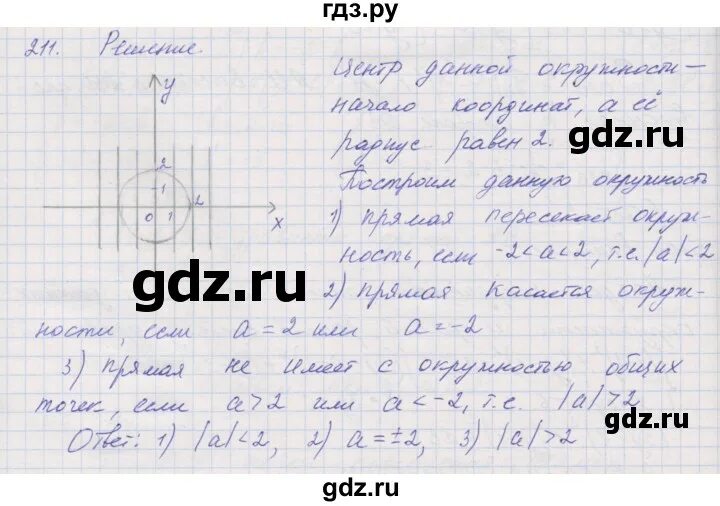 гдз.ру
211. Решение.
Центр данной окружности –
начало координат, а её
радиус равен 2.
Построим данную окружность
1) Прямая пересекает окруж-
ность, если -2<a<2, т.е. |a|<2
2) Прямая касается окруж-
ности, если a = 2 или a = -2
3) Прямая не имеет с окружностью общих
точек, если a>2 или a<-2, т.е. |a|>2
Ответ: 1) |a|<2, 2) a = ±2, 3) |a|>2
y
2
1
2
0
1
x
gdz.ru
gdz.ru
gdz.ru
gdz.ru
gdz.ru